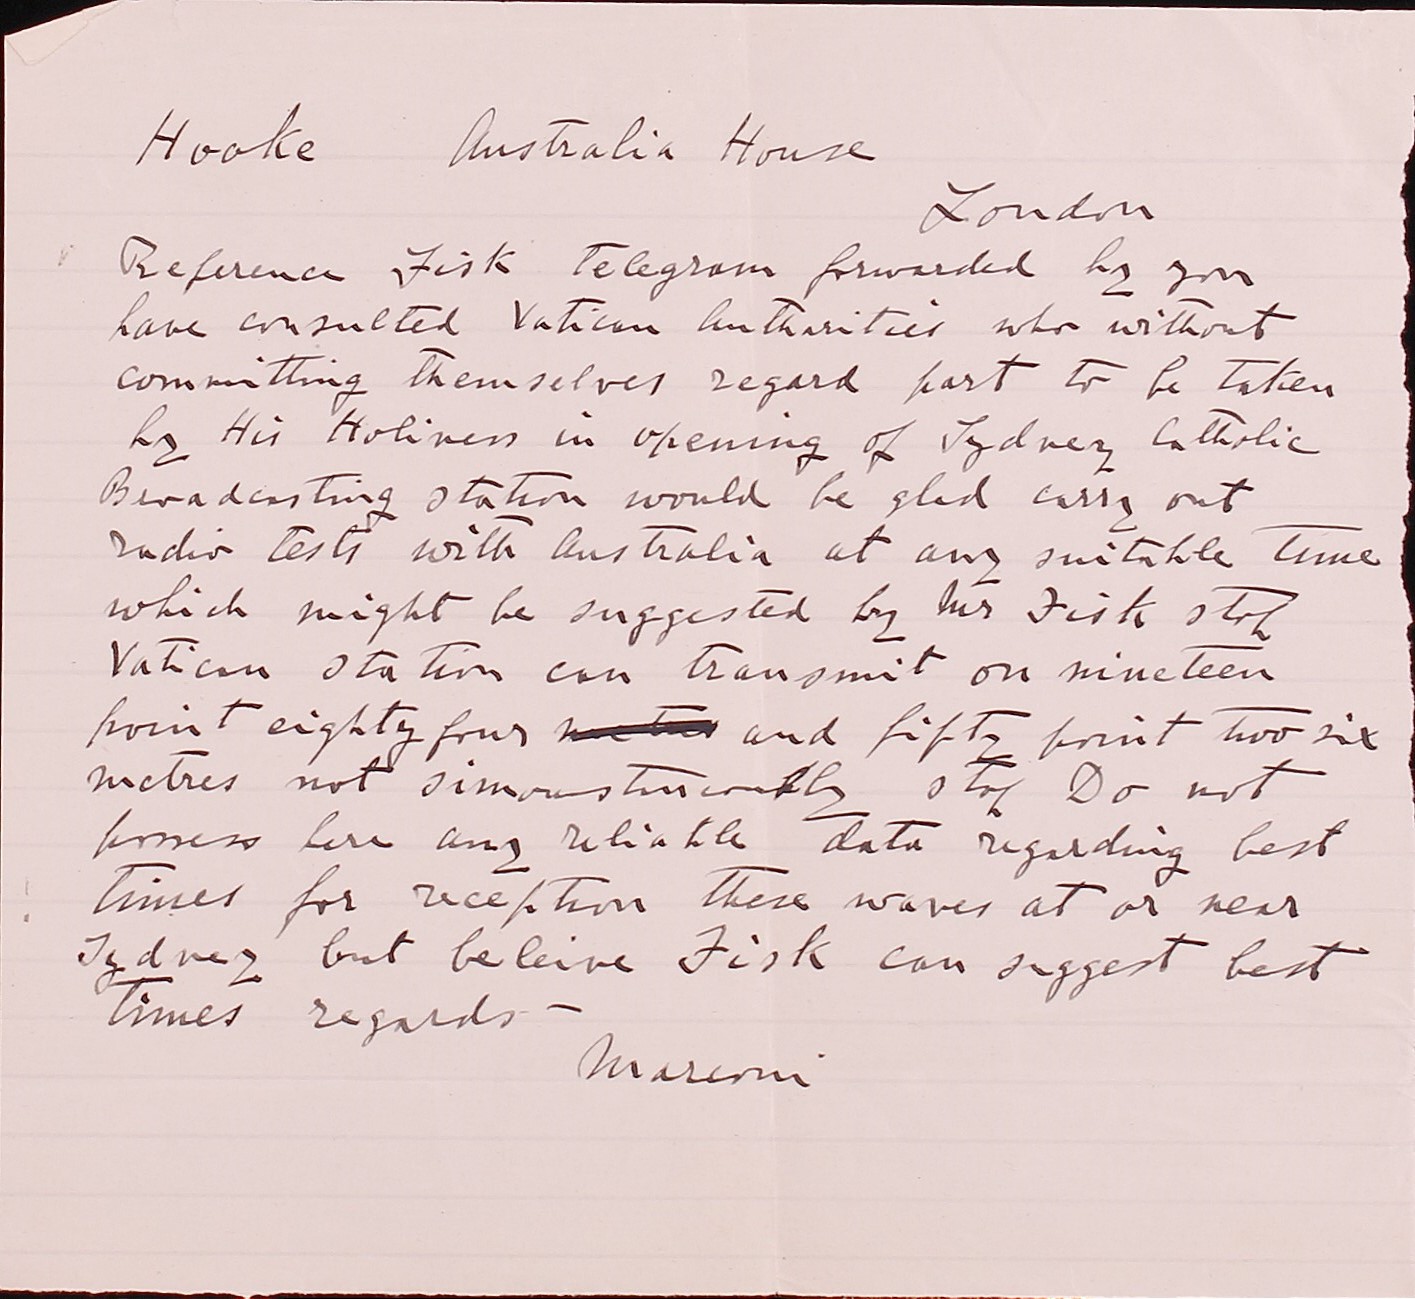 Hooke Australia House
London
Reference Fisk telegram forwarded by you
have consulted Vatican Authorities who without
committing themselves regard part to be taken
by His Holiness in opening of Sydney Catholic
Broadcasting station would be glad carry out
radio tests with Australia at any suitable time
which might be suggested by Mr Fisk stop
Vatican station can transmit on nineteen
point eighty four and fifty point two six
metres not stop Do not
possess here any reliable data regarding best
times for reception these waves at or near
Sydney but beleive Fisk can suggest best
times regards —
Marconi